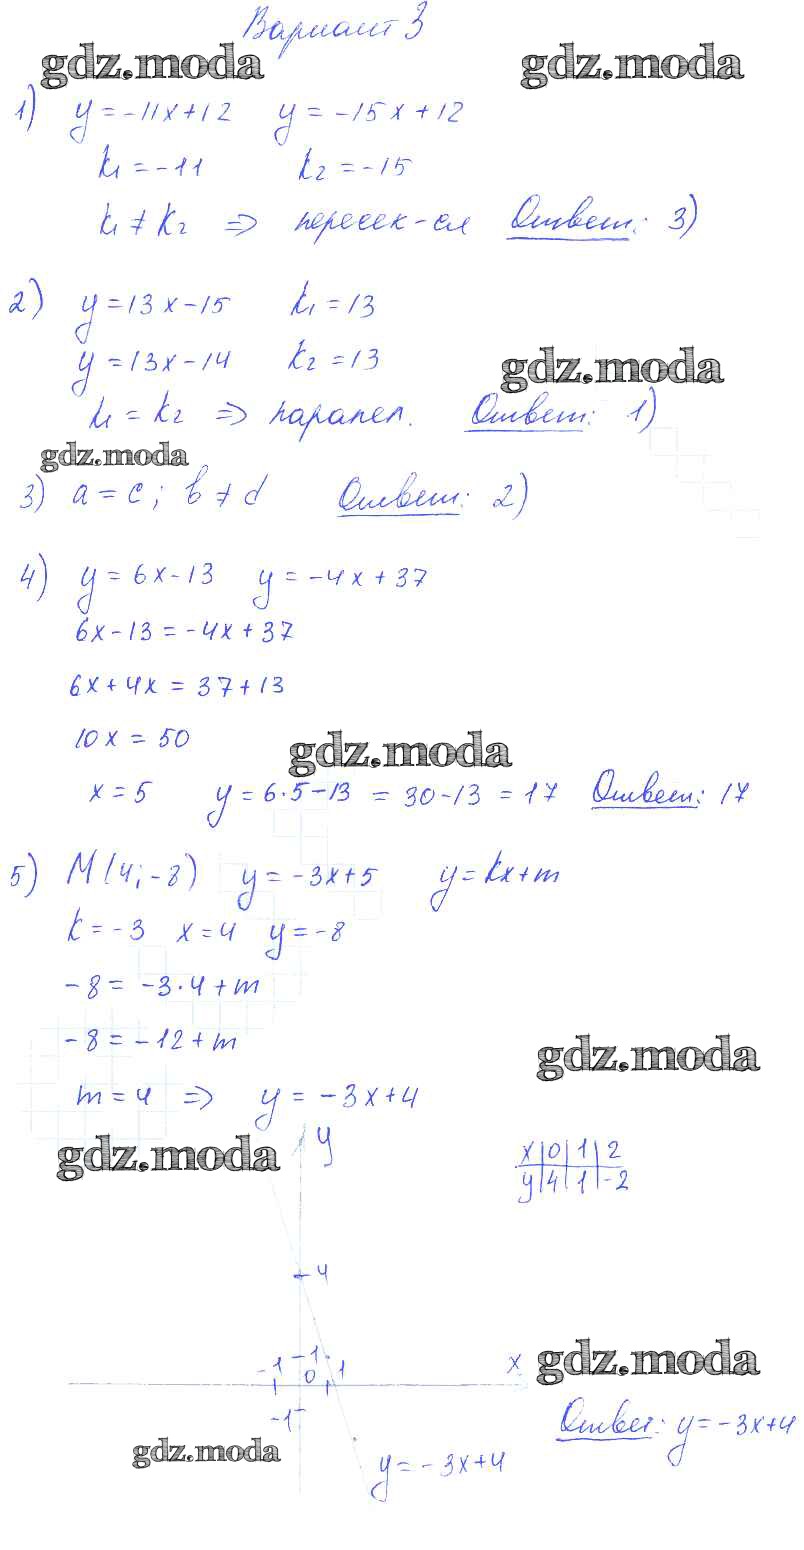 Вариант 3
gdz.moda gdz.moda
1) y = -11x+12 y = -15x+12
k₁ = -11 k₂ = -15
k₁ ≠ k₂ => пересек-ся Ответ: 3)
2) y = 13x-15 k₁ = 13
y = 13x-14 k₂ = 13
gdz.moda
k₁ = k₂ => парапел. Ответ: 1)
gdz.moda
3) a = c; b ≠ d Ответ: 2)
4) y = 6x-13 y = -4x+37
6x-13 = -4x+37
6x+4x = 37+13
10x = 50
gdz.moda
x = 5 y = 6·5-13 = 30-13 = 17 Ответ: 17
5) M(4;-8) y = -3x+5 y = kx+m
k = -3 x = 4 y = -8
-8 = -3·4+m
-8 = -12+m
gdz.moda
m = 4 => y = -3x+4
gdz.moda
y
x 0 1 2
y 4 1 -2
4
-1 1 0 1 x
gdz.moda
-1
Ответ: y = -3x+4
gdz.moda
y = -3x+4